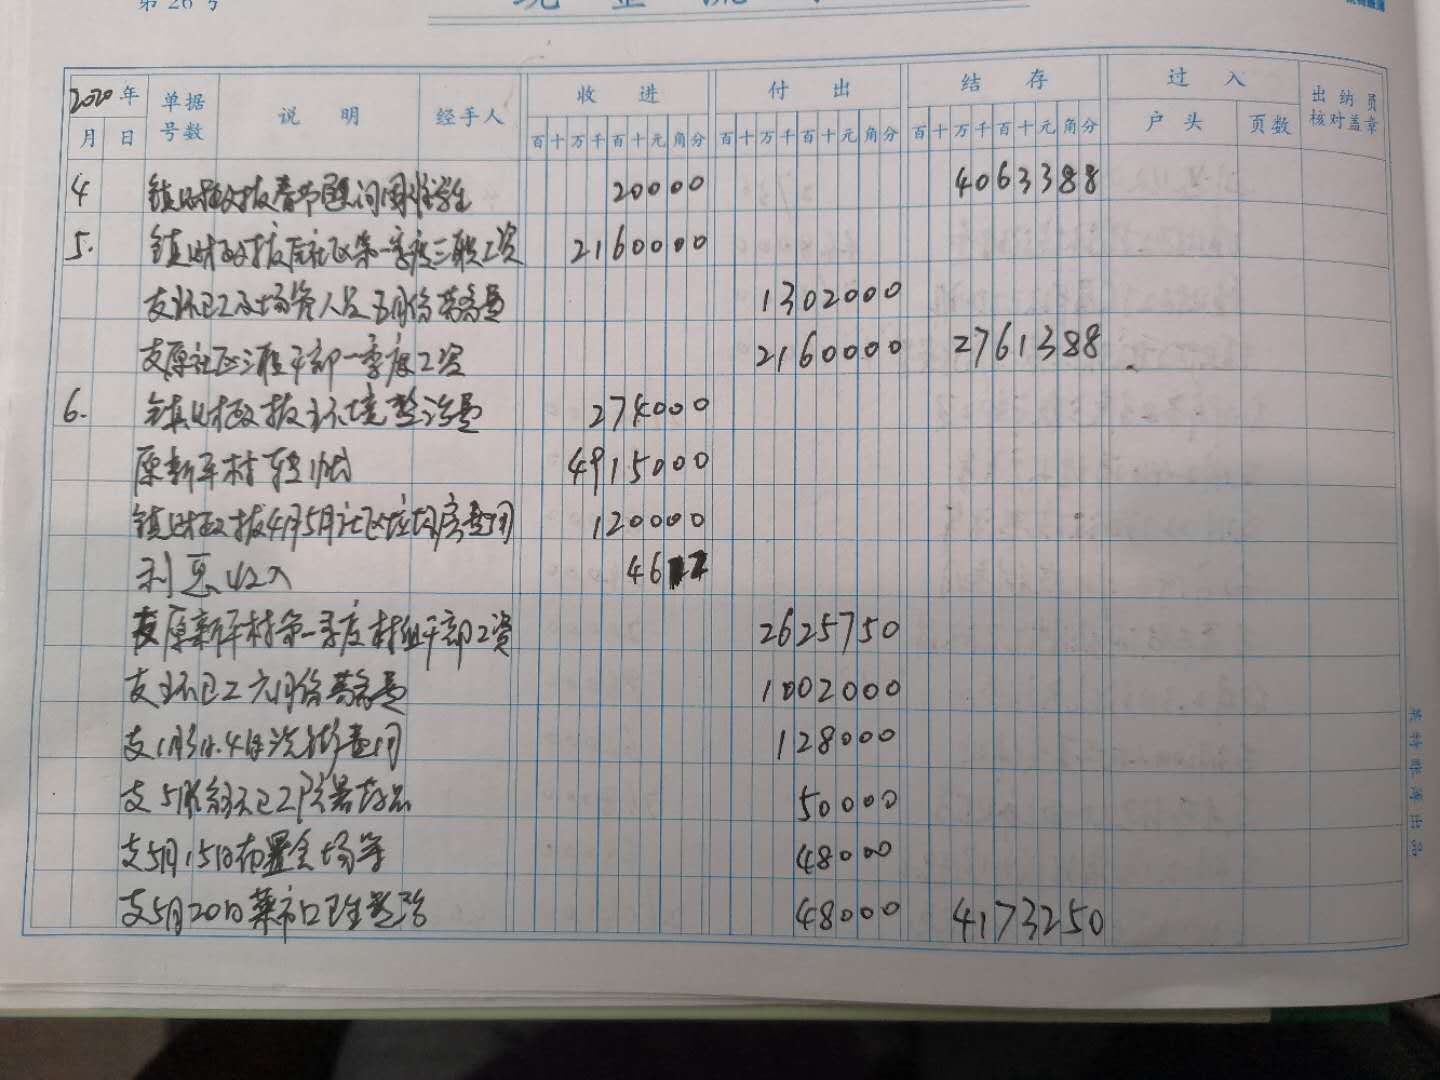 第 26 号
现 金 流
2020 年 单据号数 说 明 经手人 收 进 付 出 结 存 过 入 出纳员核对盖章
月 日 百十万千百十元角分 百十万千百十元角分 百十万千百十元角分 户 头 页数
4 镇财政拨春节慰问困难学生 20000 4063388
5. 镇财政拨原社区第一季度三职工资 2160000
支环卫工及场管人员五月份劳务费 1302000
支原社区三职干部一季度工资 2160000 2761388
6. 镇财政拨环境整治费 274000
原新平村转 4915000
镇财政拨4月5月社区垃圾房费用 120000
利息收入 46
支原新平村第一季度村组干部工资 2625750
支环卫工六月份劳务费 1002000
支1月 4日洗街费用 128000
支5月份 卫工防暑药品 50000
支5月15日布置会场等 48000
支5月20日菜市口卫生整治 48000 4173250
英特账簿出品